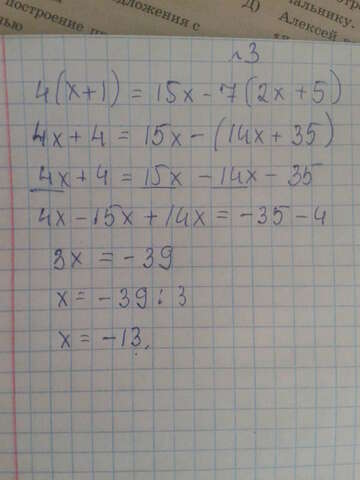 построение
едложения с
Д) Алексей
чальнику.
№3
4(x+1) = 15x - 7(2x+5)
4x+4 = 15x - (14x+35)
4x+4 = 15x - 14x - 35
4x - 15x + 14x = -35 - 4
3x = -39
x = -39 : 3
x = -13.